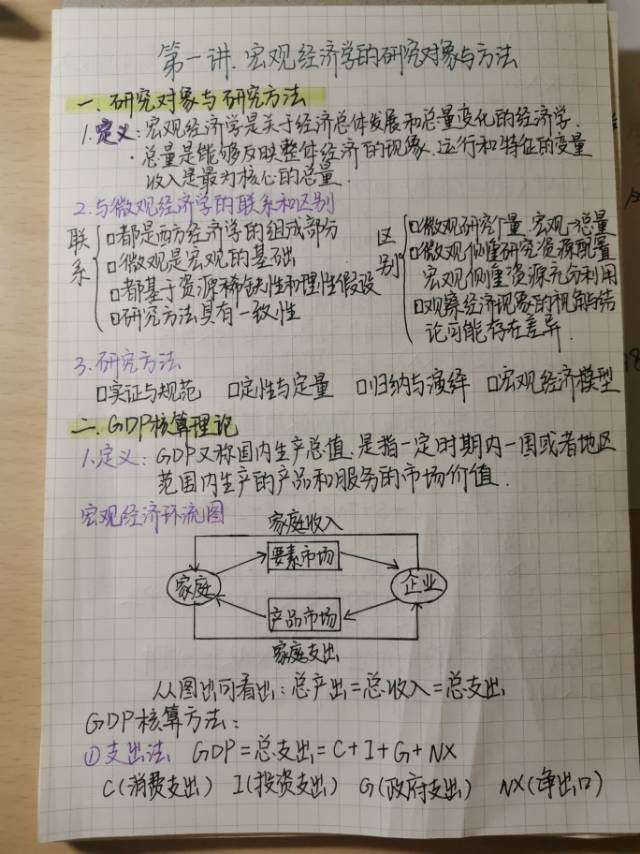 第一讲.宏观经济学的研究对象与方法
一.研究对象与研究方法
1.定义:宏观经济学是关于经济总体发展和总量变化的经济学.
·总量是能够反映整体经济的现象、运行和特征的变量
收入是最为核心的总量.
2.与微观经济学的联系和区别
联系
□都是西方经济学的组成部分
□微观是宏观的基础
□都基于资源稀缺性和理性假设
□研究方法具有一致性
区别
□微观研究个量.宏观→总量
□微观侧重研究资源配置
宏观侧重资源充分利用
□观察经济现象的视角与结
论可能存在差异.
3.研究方法
□实证与规范 □定性与定量 □归纳与演绎 □宏观经济模型
二.GDP核算理论
1.定义:GDP又称国内生产总值.是指一定时期内一国或者地区
范围内生产的产品和服务的市场价值.
宏观经济环流图
家庭收入
要素市场
家庭
企业
产品市场
家庭支出
从图出可看出:总产出=总收入=总支出
GDP核算方法:
①支出法 GDP=总支出=C+I+G+NX
C(消费支出) I(投资支出) G(政府支出) NX(净出口)